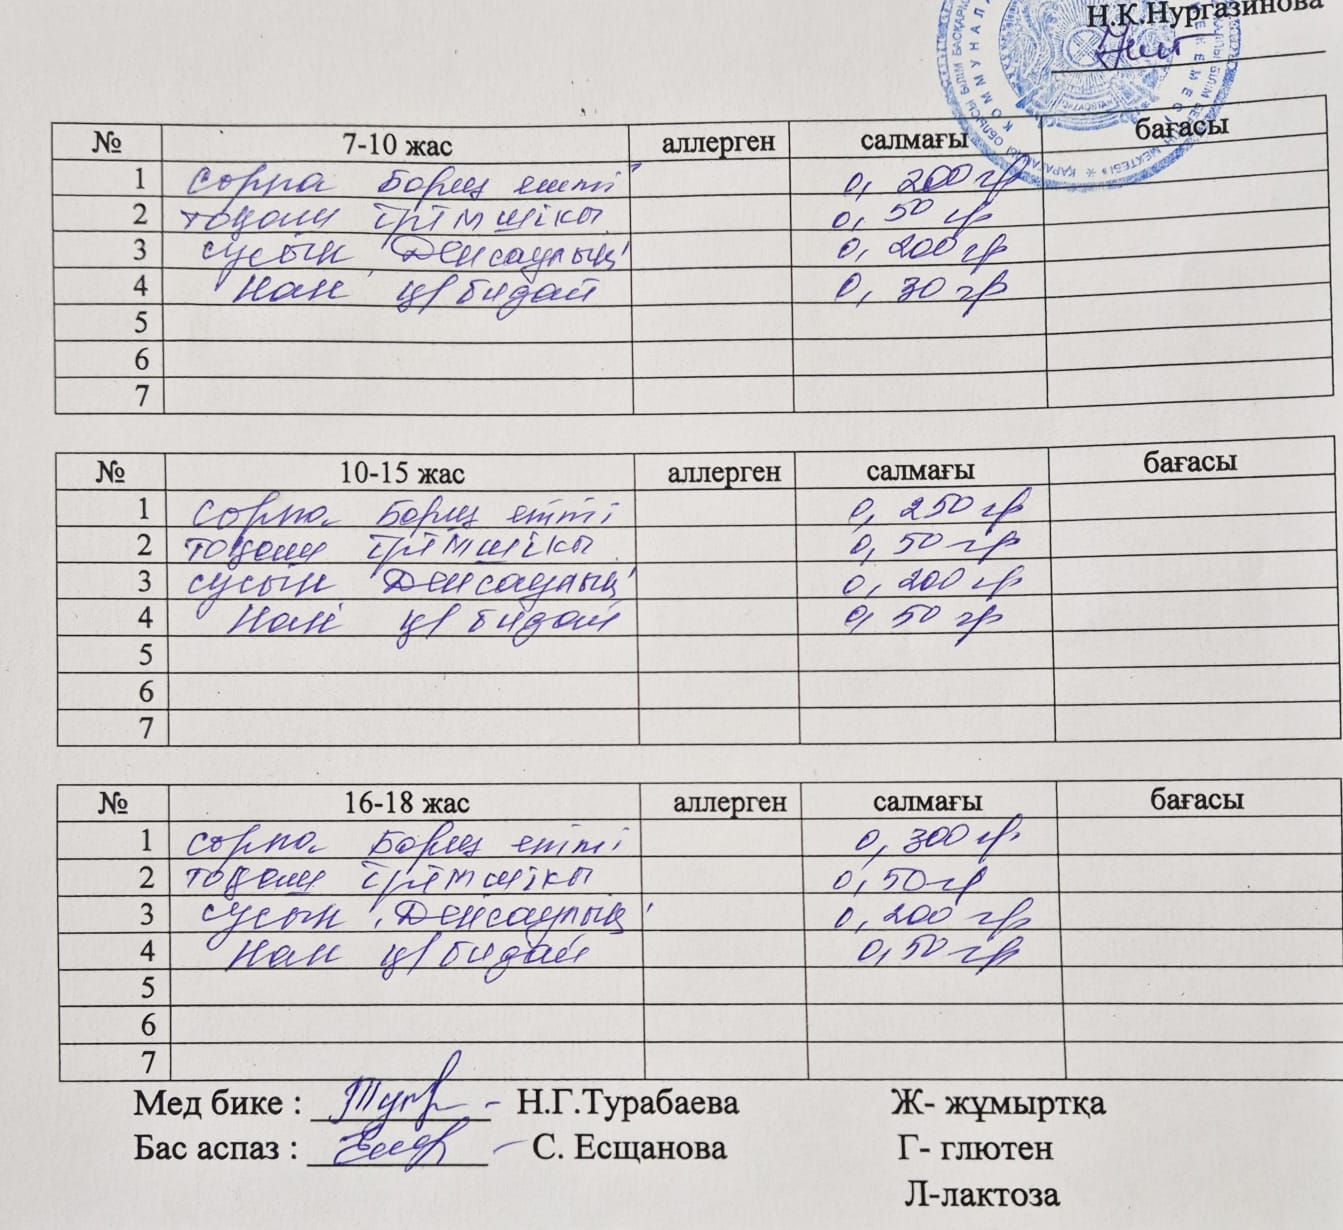 Н.К.Нургазинова
№ 7-10 жас аллерген салмағы бағасы
1 сорпа Борщ етті 0, 200 гр
2 тоқаш ірімшікті 0, 50 гр
3 сусын "Денсаулық" 0, 200 гр
4 Нан қ/бидай 0, 30 гр
5
6
7
№ 10-15 жас аллерген салмағы бағасы
1 сорпа Борщ етті 0, 250 гр
2 тоқаш ірімшікті 0, 50 гр
3 сусын "Денсаулық" 0, 200 гр
4 Нан қ/бидай 0, 50 гр
5
6
7
№ 16-18 жас аллерген салмағы бағасы
1 сорпа Борщ етті 0, 300 гр
2 тоқаш ірімшікті 0, 50 гр
3 сусын "Денсаулық" 0, 200 гр
4 Нан қ/бидай 0, 50 гр
5
6
7
Мед бике : - Н.Г.Турабаева Ж- жұмыртқа
Бас аспаз : - С. Есщанова Г- глютен
Л-лактоза